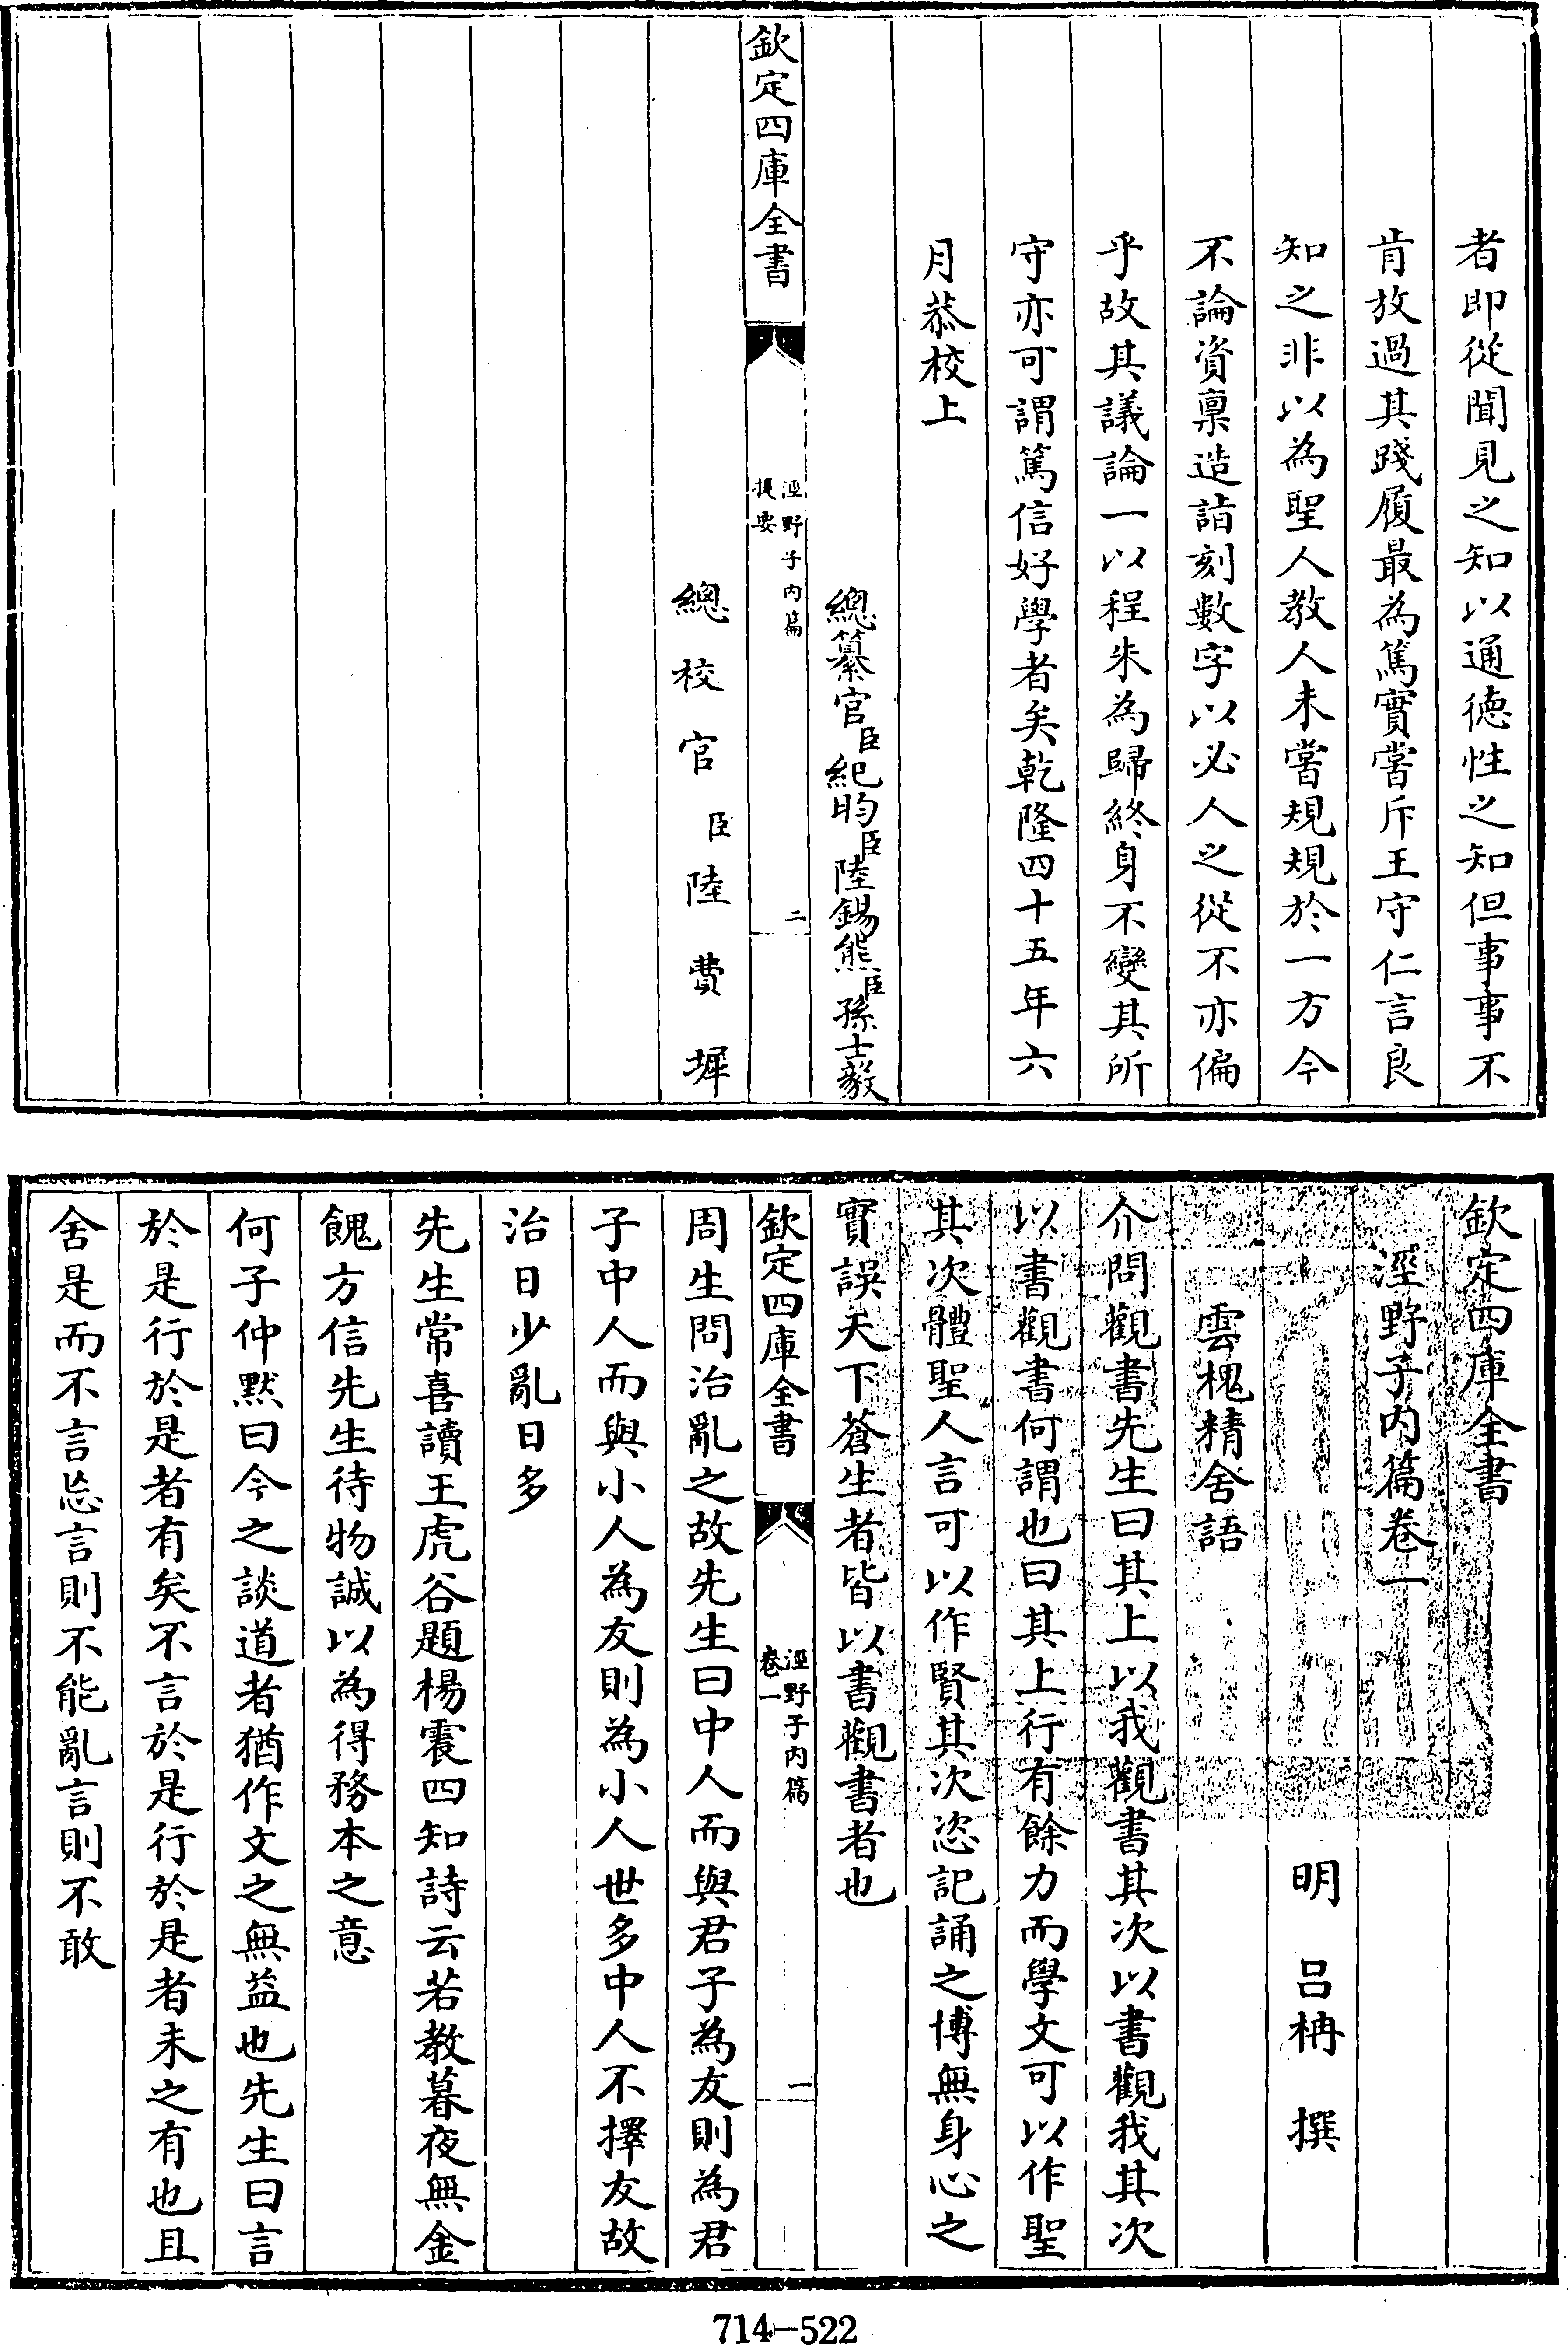 者即從聞見之知以通徳性之知但事事不
肯放過其踐履最為篤實嘗斥王守仁言良
知之非以為聖人教人未嘗規規於一方今
不論資稟造詣刻數字以必人之從不亦偏
乎故其議論一以程朱為歸終身不變其所
守亦可謂篤信好學者矣乾隆四十五年六
月恭校上
總纂官臣紀昀臣陸錫熊臣孫士毅
欽定四庫全書
涇野子内篇
提要
二
總校官臣陸費墀
欽定四庫全書
涇野子内篇卷一
明呂柟撰
雲槐精舍語
介問觀書先生曰其上以我觀書其次以書觀我其次
以書觀書何謂也曰其上行有餘力而學文可以作聖
其次體聖人言可以作賢其次恣記誦之博無身心之
實誤天下蒼生者皆以書觀書者也
欽定四庫全書
涇野子内篇
卷一
一
周生問治亂之故先生曰中人而與君子為友則為君
子中人而與小人為友則為小人世多中人不擇友故
治日少亂日多
先生常喜讀王虎谷題楊震四知詩云若教暮夜無金
餽方信先生待物誠以為得務本之意
何子仲黙曰今之談道者猶作文之無益也先生曰言
於是行於是者有矣不言於是行於是者未之有也且
舍是而不言忘言則不能亂言則不敢
714-522